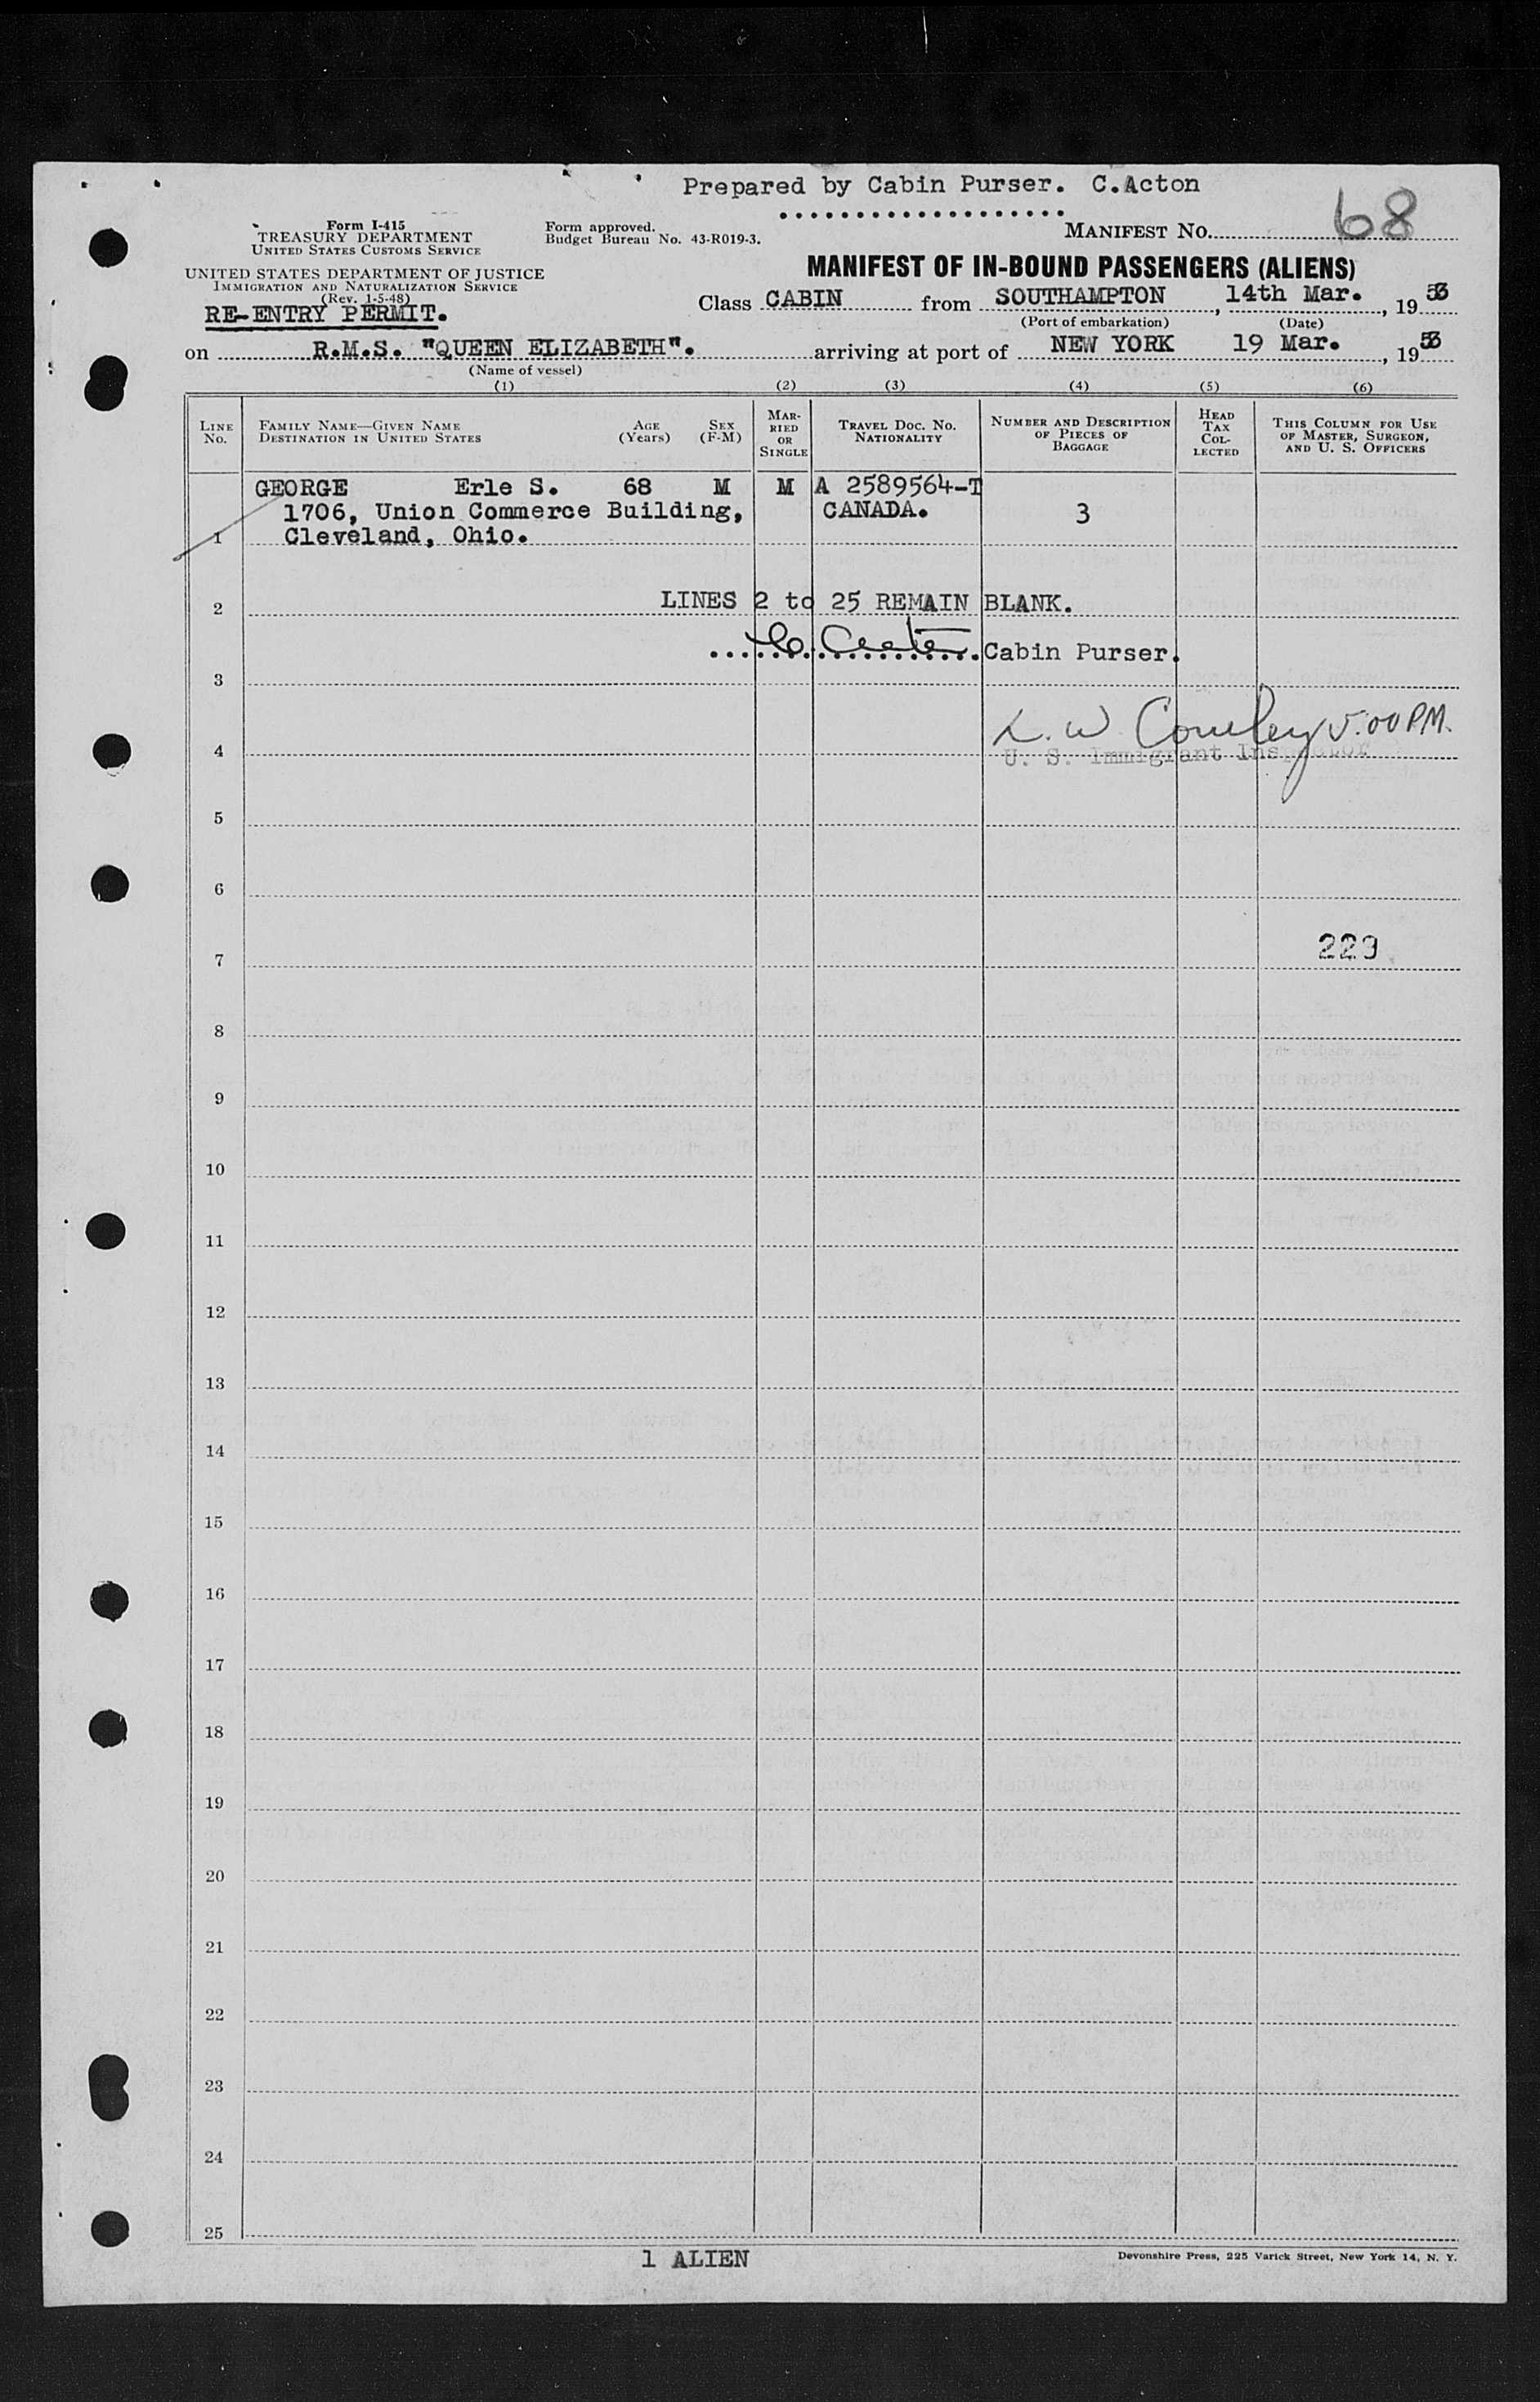 Prepared by Cabin Purser. C.Acton
Form I-415
TREASURY DEPARTMENT
UNITED STATES CUSTOMS SERVICE
Form approved.
Budget Bureau No. 43-R019-3.
MANIFEST NO. 68
UNITED STATES DEPARTMENT OF JUSTICE
IMMIGRATION AND NATURALIZATION SERVICE
(Rev. 1-5-48)
MANIFEST OF IN-BOUND PASSENGERS (ALIENS)
RE-ENTRY PERMIT.
Class CABIN from SOUTHAMPTON, 14th Mar., 1953
(Port of embarkation) (Date)
on R.M.S. "QUEEN ELIZABETH". arriving at port of NEW YORK 19 Mar., 1953
(Name of vessel)
(1) (2) (3) (4) (5) (6)
LINE NO.
FAMILY NAME—GIVEN NAME
DESTINATION IN UNITED STATES
AGE (Years)
SEX (F-M)
MARRIED OR SINGLE
TRAVEL DOC. NO.
NATIONALITY
NUMBER AND DESCRIPTION OF PIECES OF BAGGAGE
HEAD TAX COLLECTED
THIS COLUMN FOR USE OF MASTER, SURGEON, AND U. S. OFFICERS
GEORGE Erle S. 68 M M A 2589564-T
1706, Union Commerce Building, CANADA. 3
1 Cleveland, Ohio.
2 LINES 2 to 25 REMAIN BLANK.
Cabin Purser.
3
L. W. 5:00 PM.
4 U. S. Immigrant Inspector
5
6
7 229
8
9
10
11
12
13
14
15
16
17
18
19
20
21
22
23
24
25
1 ALIEN
Devonshire Press, 225 Varick Street, New York 14, N. Y.